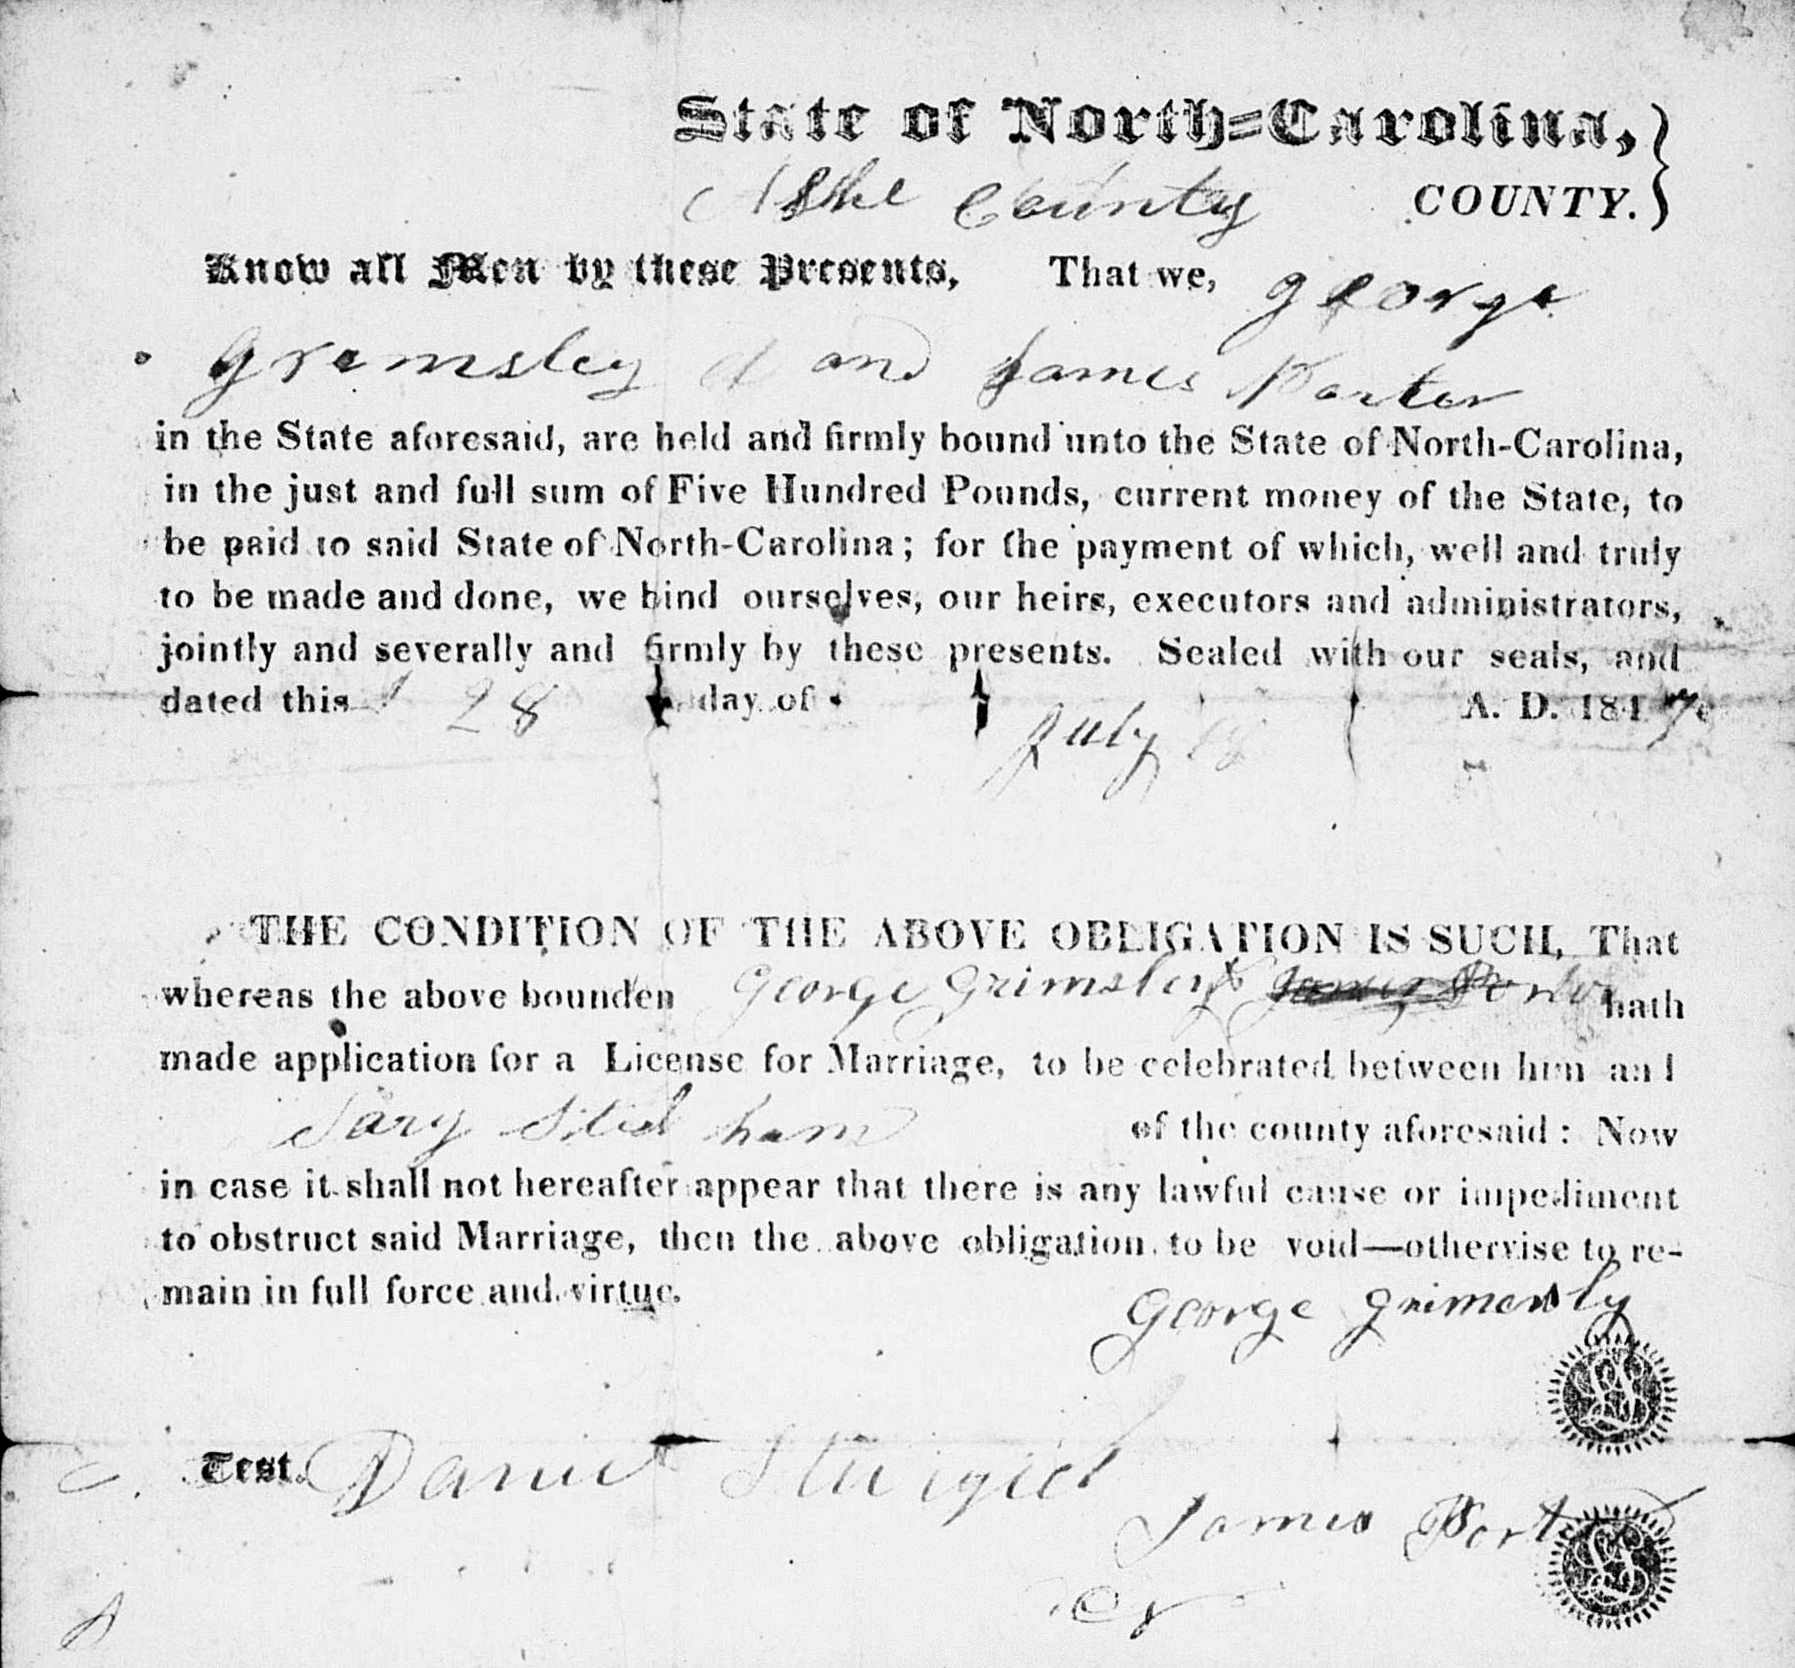 State of North-Carolina,
Ashe County COUNTY.
Know all Men by these Presents, That we, george
gremsley & and James Porter
in the State aforesaid, are held and firmly bound unto the State of North-Carolina,
in the just and full sum of Five Hundred Pounds, current money of the State, to
be paid to said State of North-Carolina; for the payment of which, well and truly
to be made and done, we bind ourselves, our heirs, executors and administrators,
jointly and severally and firmly by these presents. Sealed with our seals, and
dated this 28 day of July A. D. 1817
THE CONDITION OF THE ABOVE OBLIGATION IS SUCH, That
whereas the above bounden George Grimsley & James Porter hath
made application for a License for Marriage, to be celebrated between him and
Sary Sted ham of the county aforesaid: Now
in case it shall not hereafter appear that there is any lawful cause or impediment
to obstruct said Marriage, then the above obligation to be void—otherwise to re-
main in full force and virtue.
George grimesly
LS
Test. Daniel Sturgill
James Porter
LS